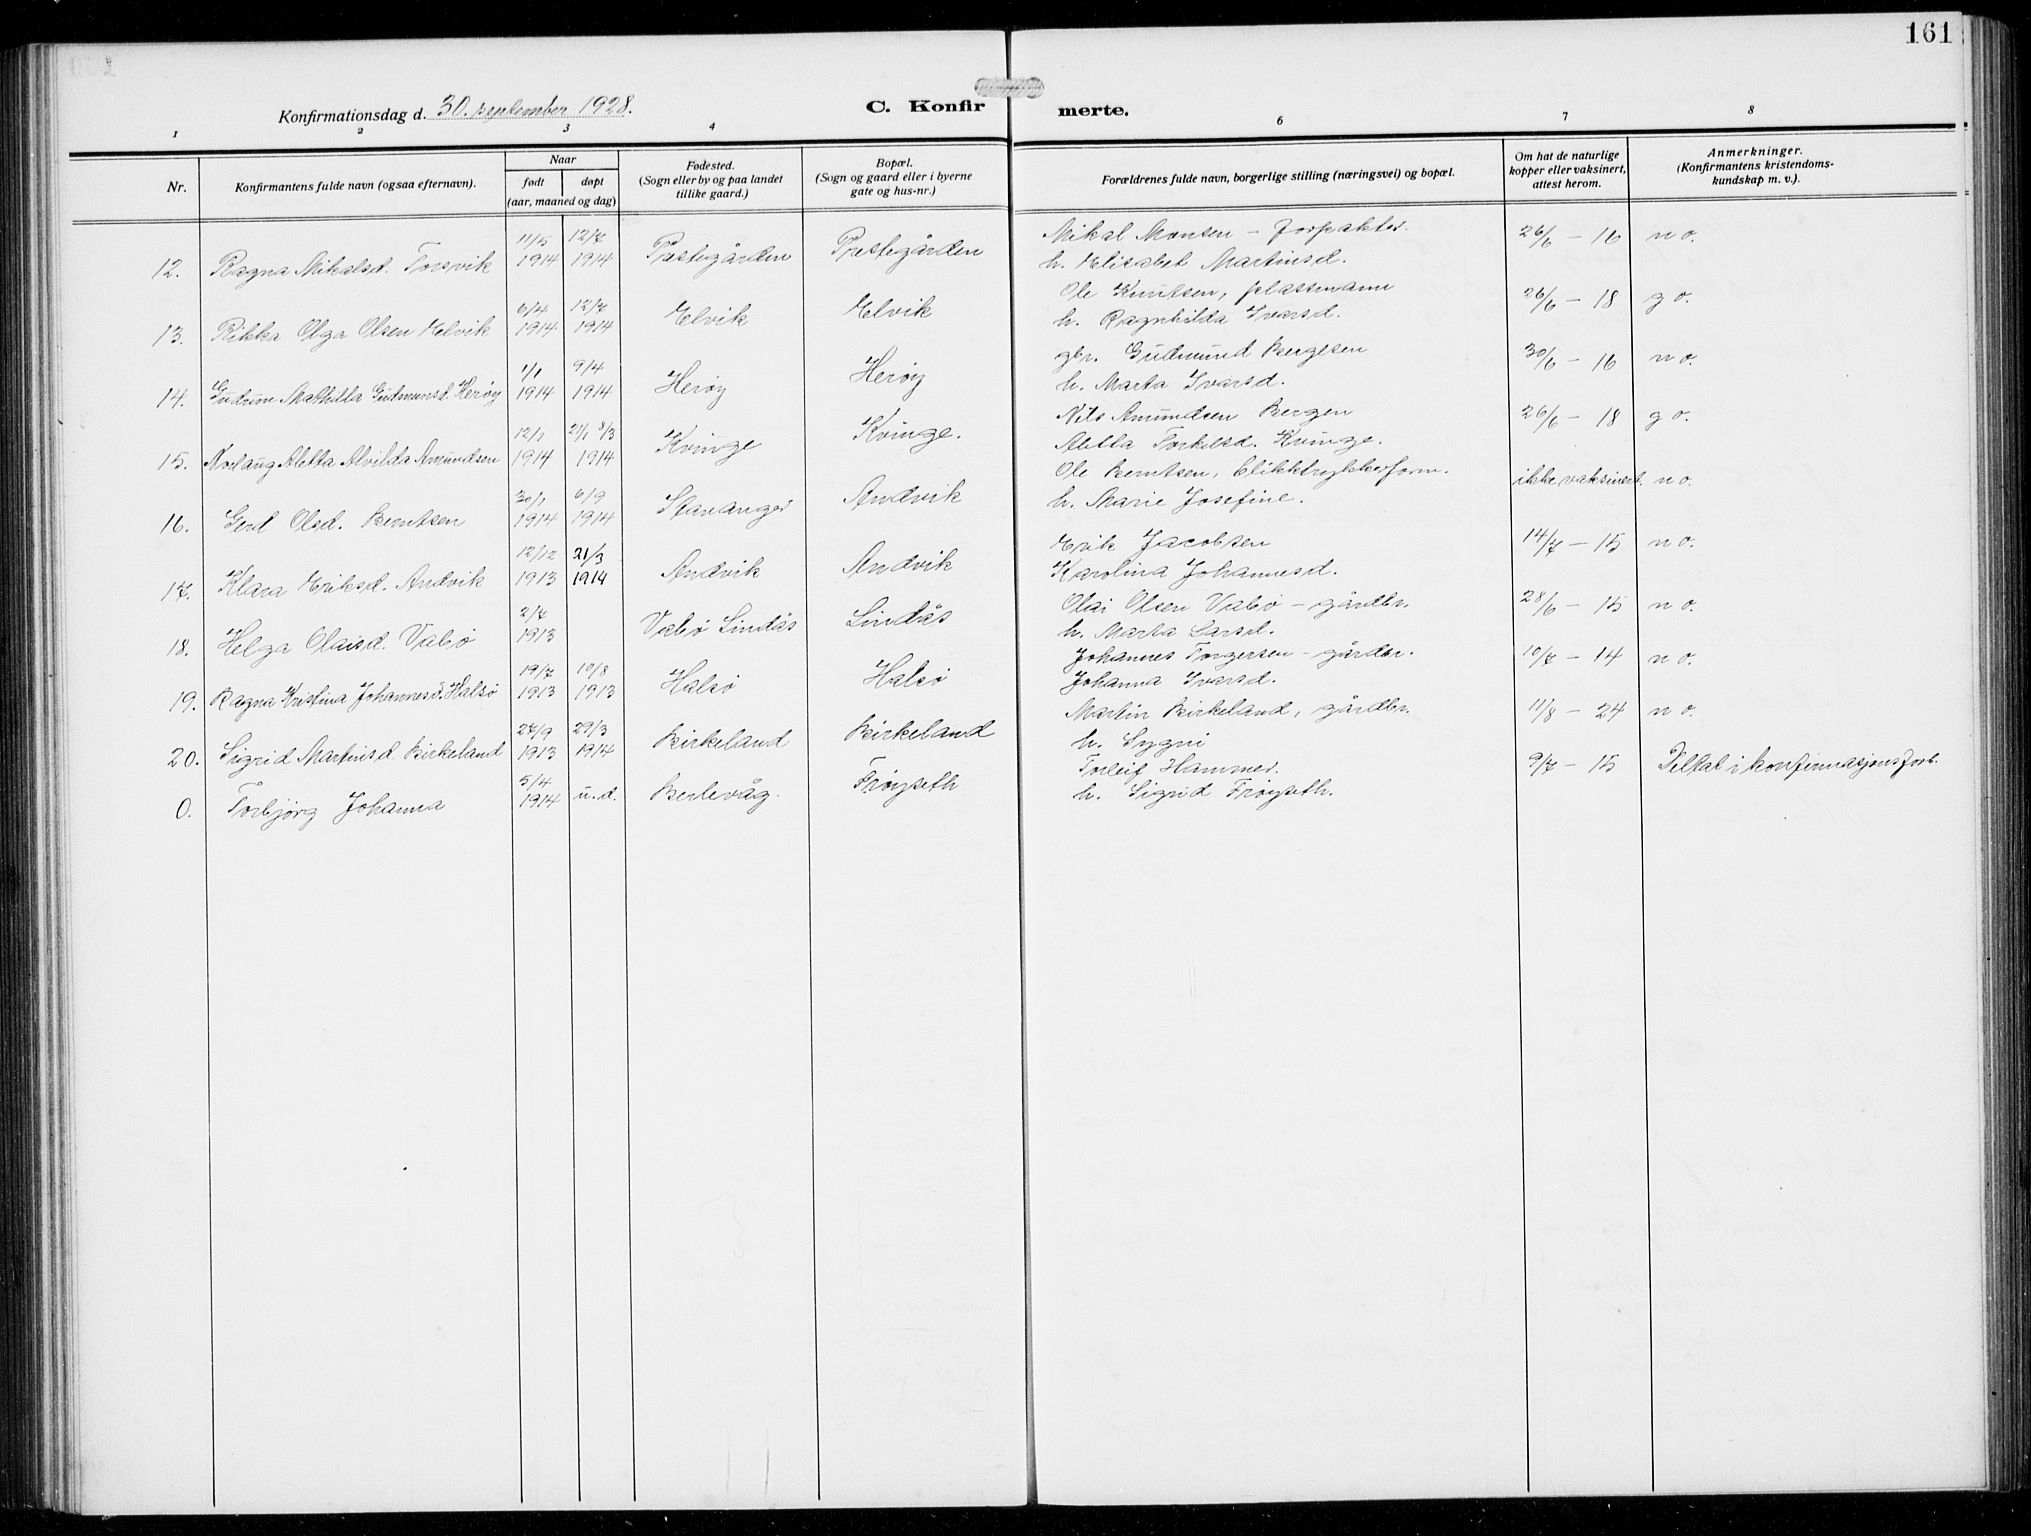 161
Konfirmationsdag d. 30. september 1928.
C. Konfirmerte.
1 2 3 4 6 7 8
Nr.
Konfirmantens fulde navn (ogsaa efternavn).
Naar
født døpt
(aar, maaned og dag)
Fødested.
(Sogn eller by og paa landet
tillike gaard.)
Bopæl.
(Sogn og gaard eller i byerne
gate og hus-nr.)
Forældrenes fulde navn, borgerlige stilling (næringsvei) og bopæl.
Om hat de naturlige
kopper eller vaksinert,
attest herom.
Anmerkninger.
(Konfirmantens kristendoms-
kundskap m. v.).
11/5 12/7 Mikal Monsen – forpakter. 26/6 – 16 n o.
12. Ragna Mikalsd. Torsvik 1914 1914 Prestegården Prestegården h. Elisabet Martinsd.
6/4 12/7 Ole Knutsen, plassmann 26/6 – 18 g o.
13. Rikka Olga Olsen Elvik 1914 1914 Elvik Elvik h. Ragnhilda Ivarsd.
1/1 9/4 gbr. Gudmund Bergesen 30/6 – 16 n o.
14. Gudrun Mathilla Gudmunsd. Herøy 1914 1914 Herøy Herøy h. Marta Ivarsd.
12/1 21/1 8/3 Nils Amundsen Bergen 26/6 – 18 g o.
15. Norlaug Aletta Alvilda Amundsen 1914 1914 Kvinge Kvinge. Aletta Torkelsd. Kvinge.
30/1 6/9 Ole Berntsen, blikktrykkerform. ikke vaksinert. n o.
16. Gerd Olsd. Berntsen 1914 1914 Stavanger Andvik h. Marie Josefine.
12/12 21/3 Erik Jacobsen 14/7 – 15 n o.
17. Klara Eriksd. Andvik 1913 1914 Andvik Andvik Karolina Johannesd.
2/7 Olai Olsen Valsø – gårdbr. 28/6 – 15 n o.
18. Helga Olaisd. Valsø 1913 Valsø Lindås Lindås h. Marta Larsd.
19/7 10/8 Johannes Torgersen – gårdbr. 10/7 – 14 n o.
19. Ragna Kristina Johannesd. Halsø 1913 1913 Halsø Halsø Johanna Ivarsd.
27/9 29/3 Martin Birkeland, gårdbr. 11/8 – 24 n o.
20. Sigrid Martinsd. Birkeland 1913 1914 Birkeland Birkeland h. Sygni
5/4 Torleif Hammer. 9/7 – 15 Deltat i konfirmasjonsforb.
0. Torbjørg Johanna 1914 u.d. Berlevåg. Frøyseth h. Sigrid Frøyseth.